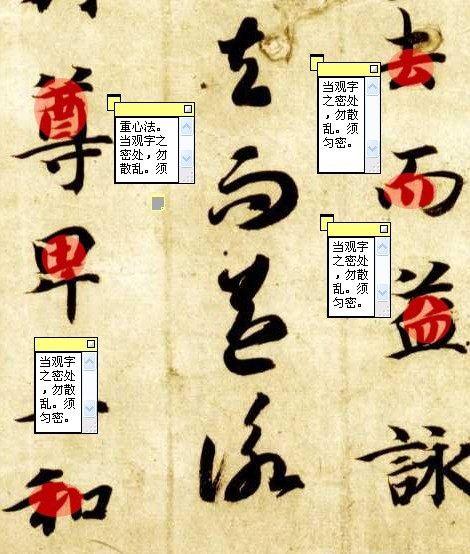 去而益詠
去而益詠
尊卑
和
当观字
之密处
，勿散
乱。须
匀密。
重心法。
当观字之
密处，勿
散乱。须
当观字
之密处
，勿散
乱。须
匀密。
当观字
之密处
，勿散
乱。须
匀密。